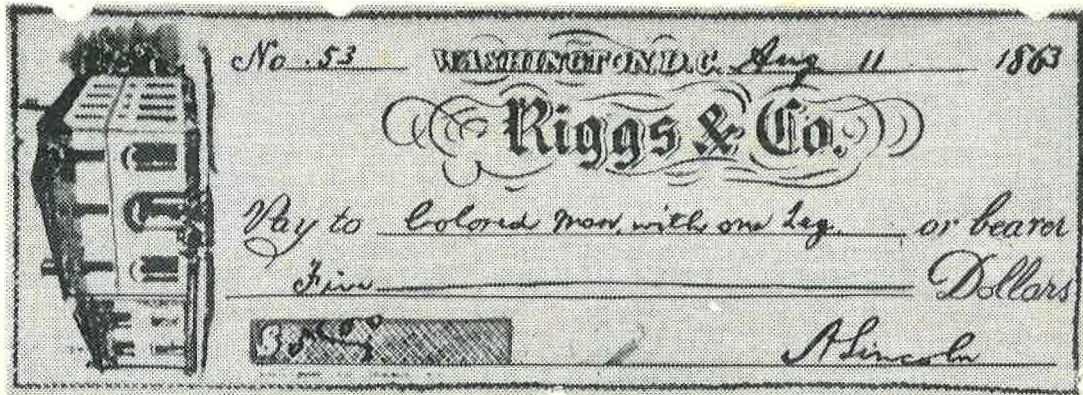 No. 53 WASHINGTON D.C. Aug 11 1863
Riggs & Co.
Pay to Colored man, with one Leg. or bearer
Five Dollars
$5/00 A Lincoln